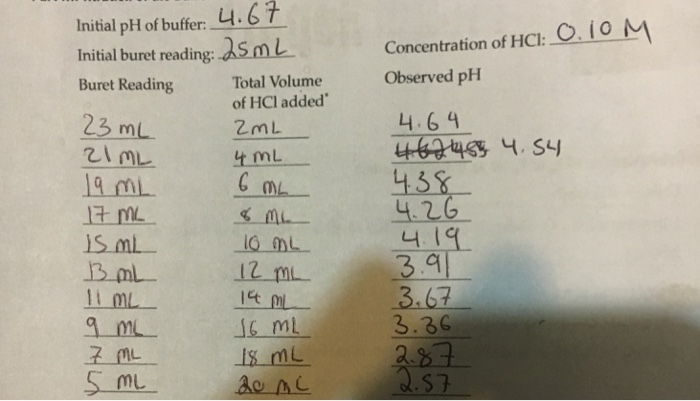 Initial pH of buffer: 4.67
Initial buret reading: 25 mL
Concentration of HCl: 0.10 M
Buret Reading Total Volume of HCl added* Observed pH
23 mL 2 mL 4.64
21 mL 4 mL 4.54
19 mL 6 mL 4.38
17 mL 8 mL 4.26
15 mL 10 mL 4.19
13 mL 12 mL 3.91
11 mL 14 mL 3.67
9 mL 16 mL 3.36
7 mL 18 mL 2.87
5 mL 20 mL 2.57